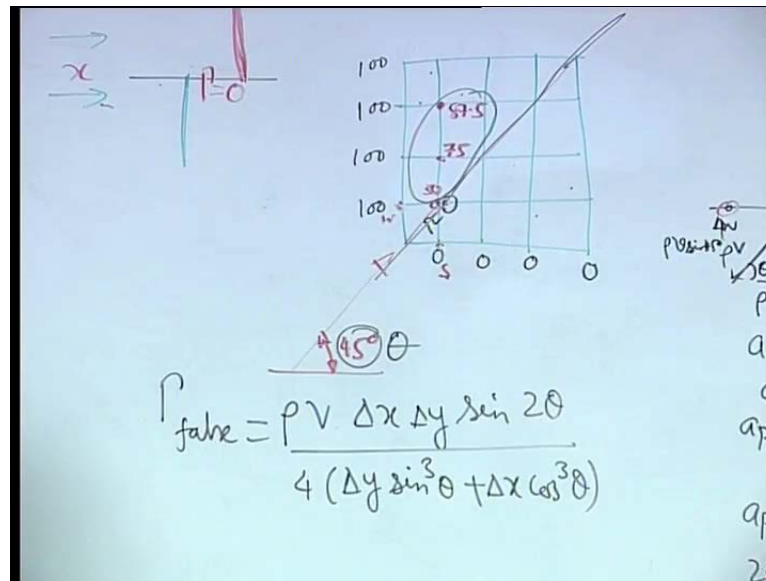 x
Γ=0
100
100 57.5
100 75
100
0 0 0 0
5
45° θ
Γfalse = ρV Δx Δy sin 2θ
4 (Δy sin³θ + Δx cos³θ)
ρV